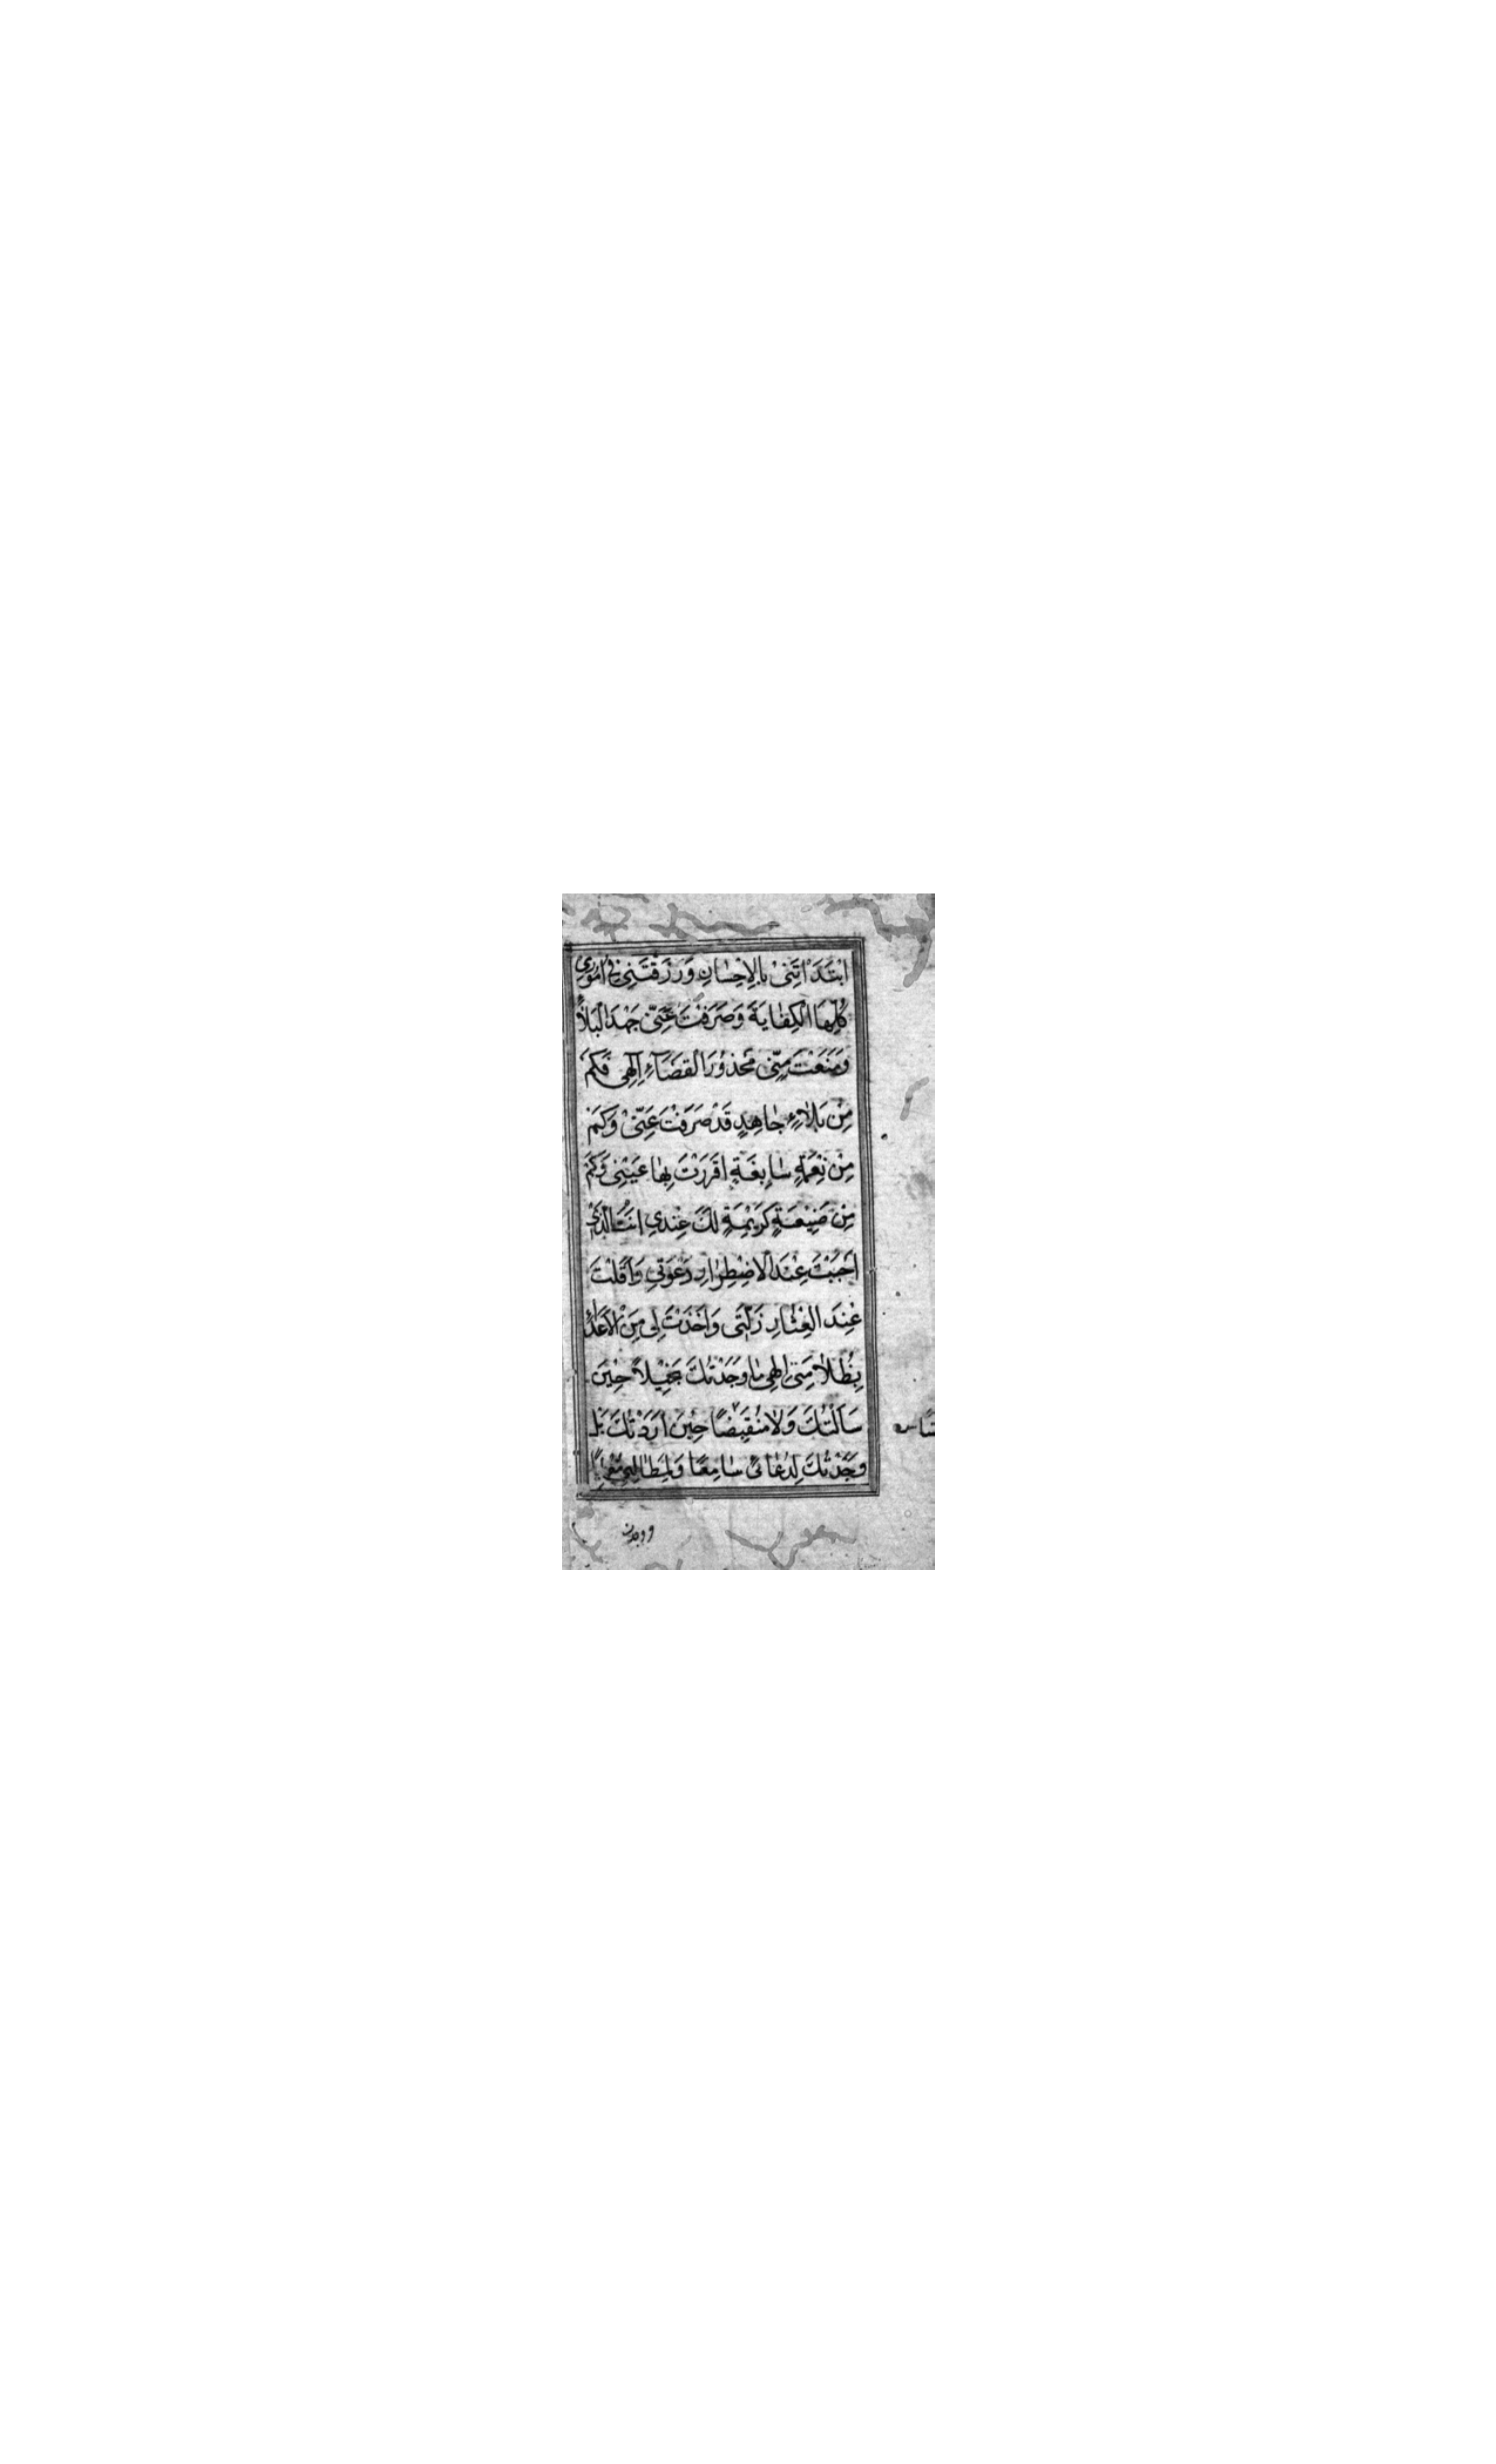 ابْتَدَاْتَنیْ بِالاِحْسٰانِ وَرَزَقْتَنِی فِی اُمُورِی
كُلِّهَا الْكِفٰایَةَ وَصَرَفْتَ عَنّیِ جَهْدَ الْبَلاٰءِ
وَمَنَعْتَ مِنّیِ مَحْذُوْرَ الْقَضَآءِ اِلٰهِی فَكَمْ
مِنْ بَلاٰءٍ جٰاهِدٍ قَدْ صَرَفْتَ عَنّیِ وَكَمْ
مِنْ نِعْمَةٍ سٰابِغَةٍ اَقْرَرْتَ بِهٰا عَیْنِی وَكَمْ
مِنْ صَنِیْعَةٍ كَرِیْمَةٍ لَكَ عِنْدِی اَنْتَ الَّذِی
اَجَبْتَ عِنْدَ الاِضْطِرٰارِ دَعْوَتِی وَاَقَلْتَ
عِنْدَ الْعِثٰارِ زَلَّتِی وَاَخَذْتَ لِی مِنَ الْاَعْدٰاءِ
بِظُلاٰمَتِی اِلٰهِی مٰا وَجَدْتُكَ بَخِیْلاً حِیْنَ
سَاَلْتُكَ وَلاٰ مُنْقَبِضًا حِیْنَ اَرَدْتُكَ بَلْ
وَجَدْتُكَ لِدُعٰائی سٰامِعًا وَلِمَطٰالِبِی مُعْطِیًا